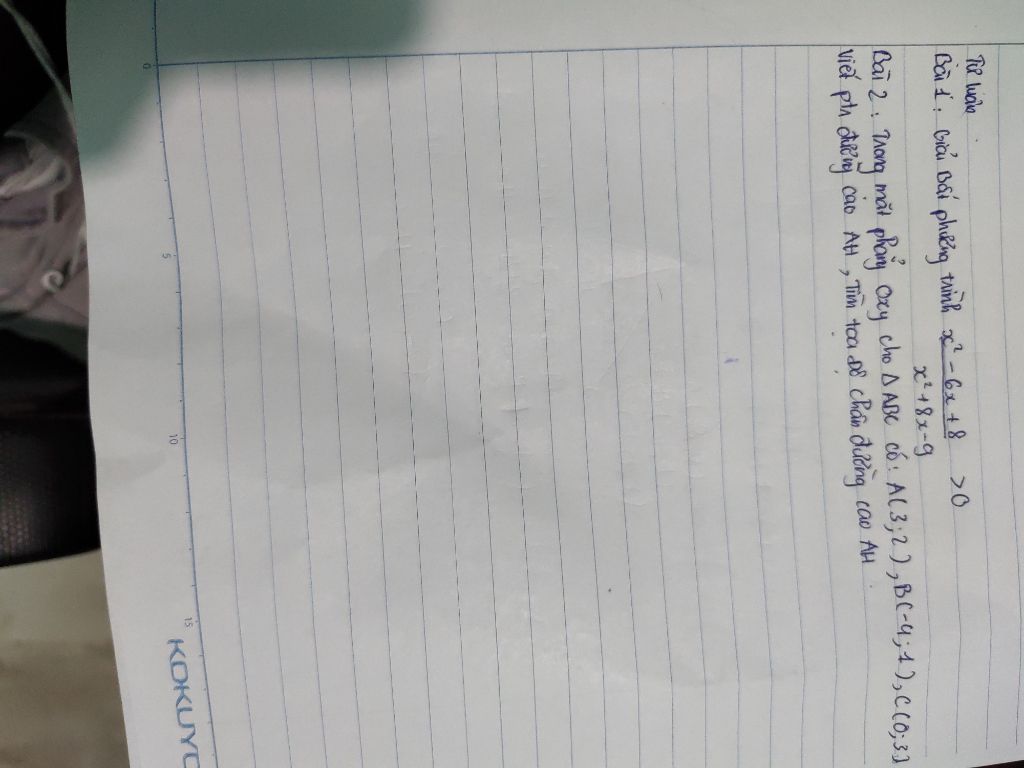 Tự luận
Bài 1: Giải bất phương trình x² - 6x + 8 / x² + 8x - 9 > 0
Bài 2: Trong mặt phẳng oxy cho Δ ABC có: A(3;2), B(-4;1), C(0;3)
Viết pt đường cao AH, Tìm toạ độ chân đường cao AH.
0
5
10
15
KOKUYO